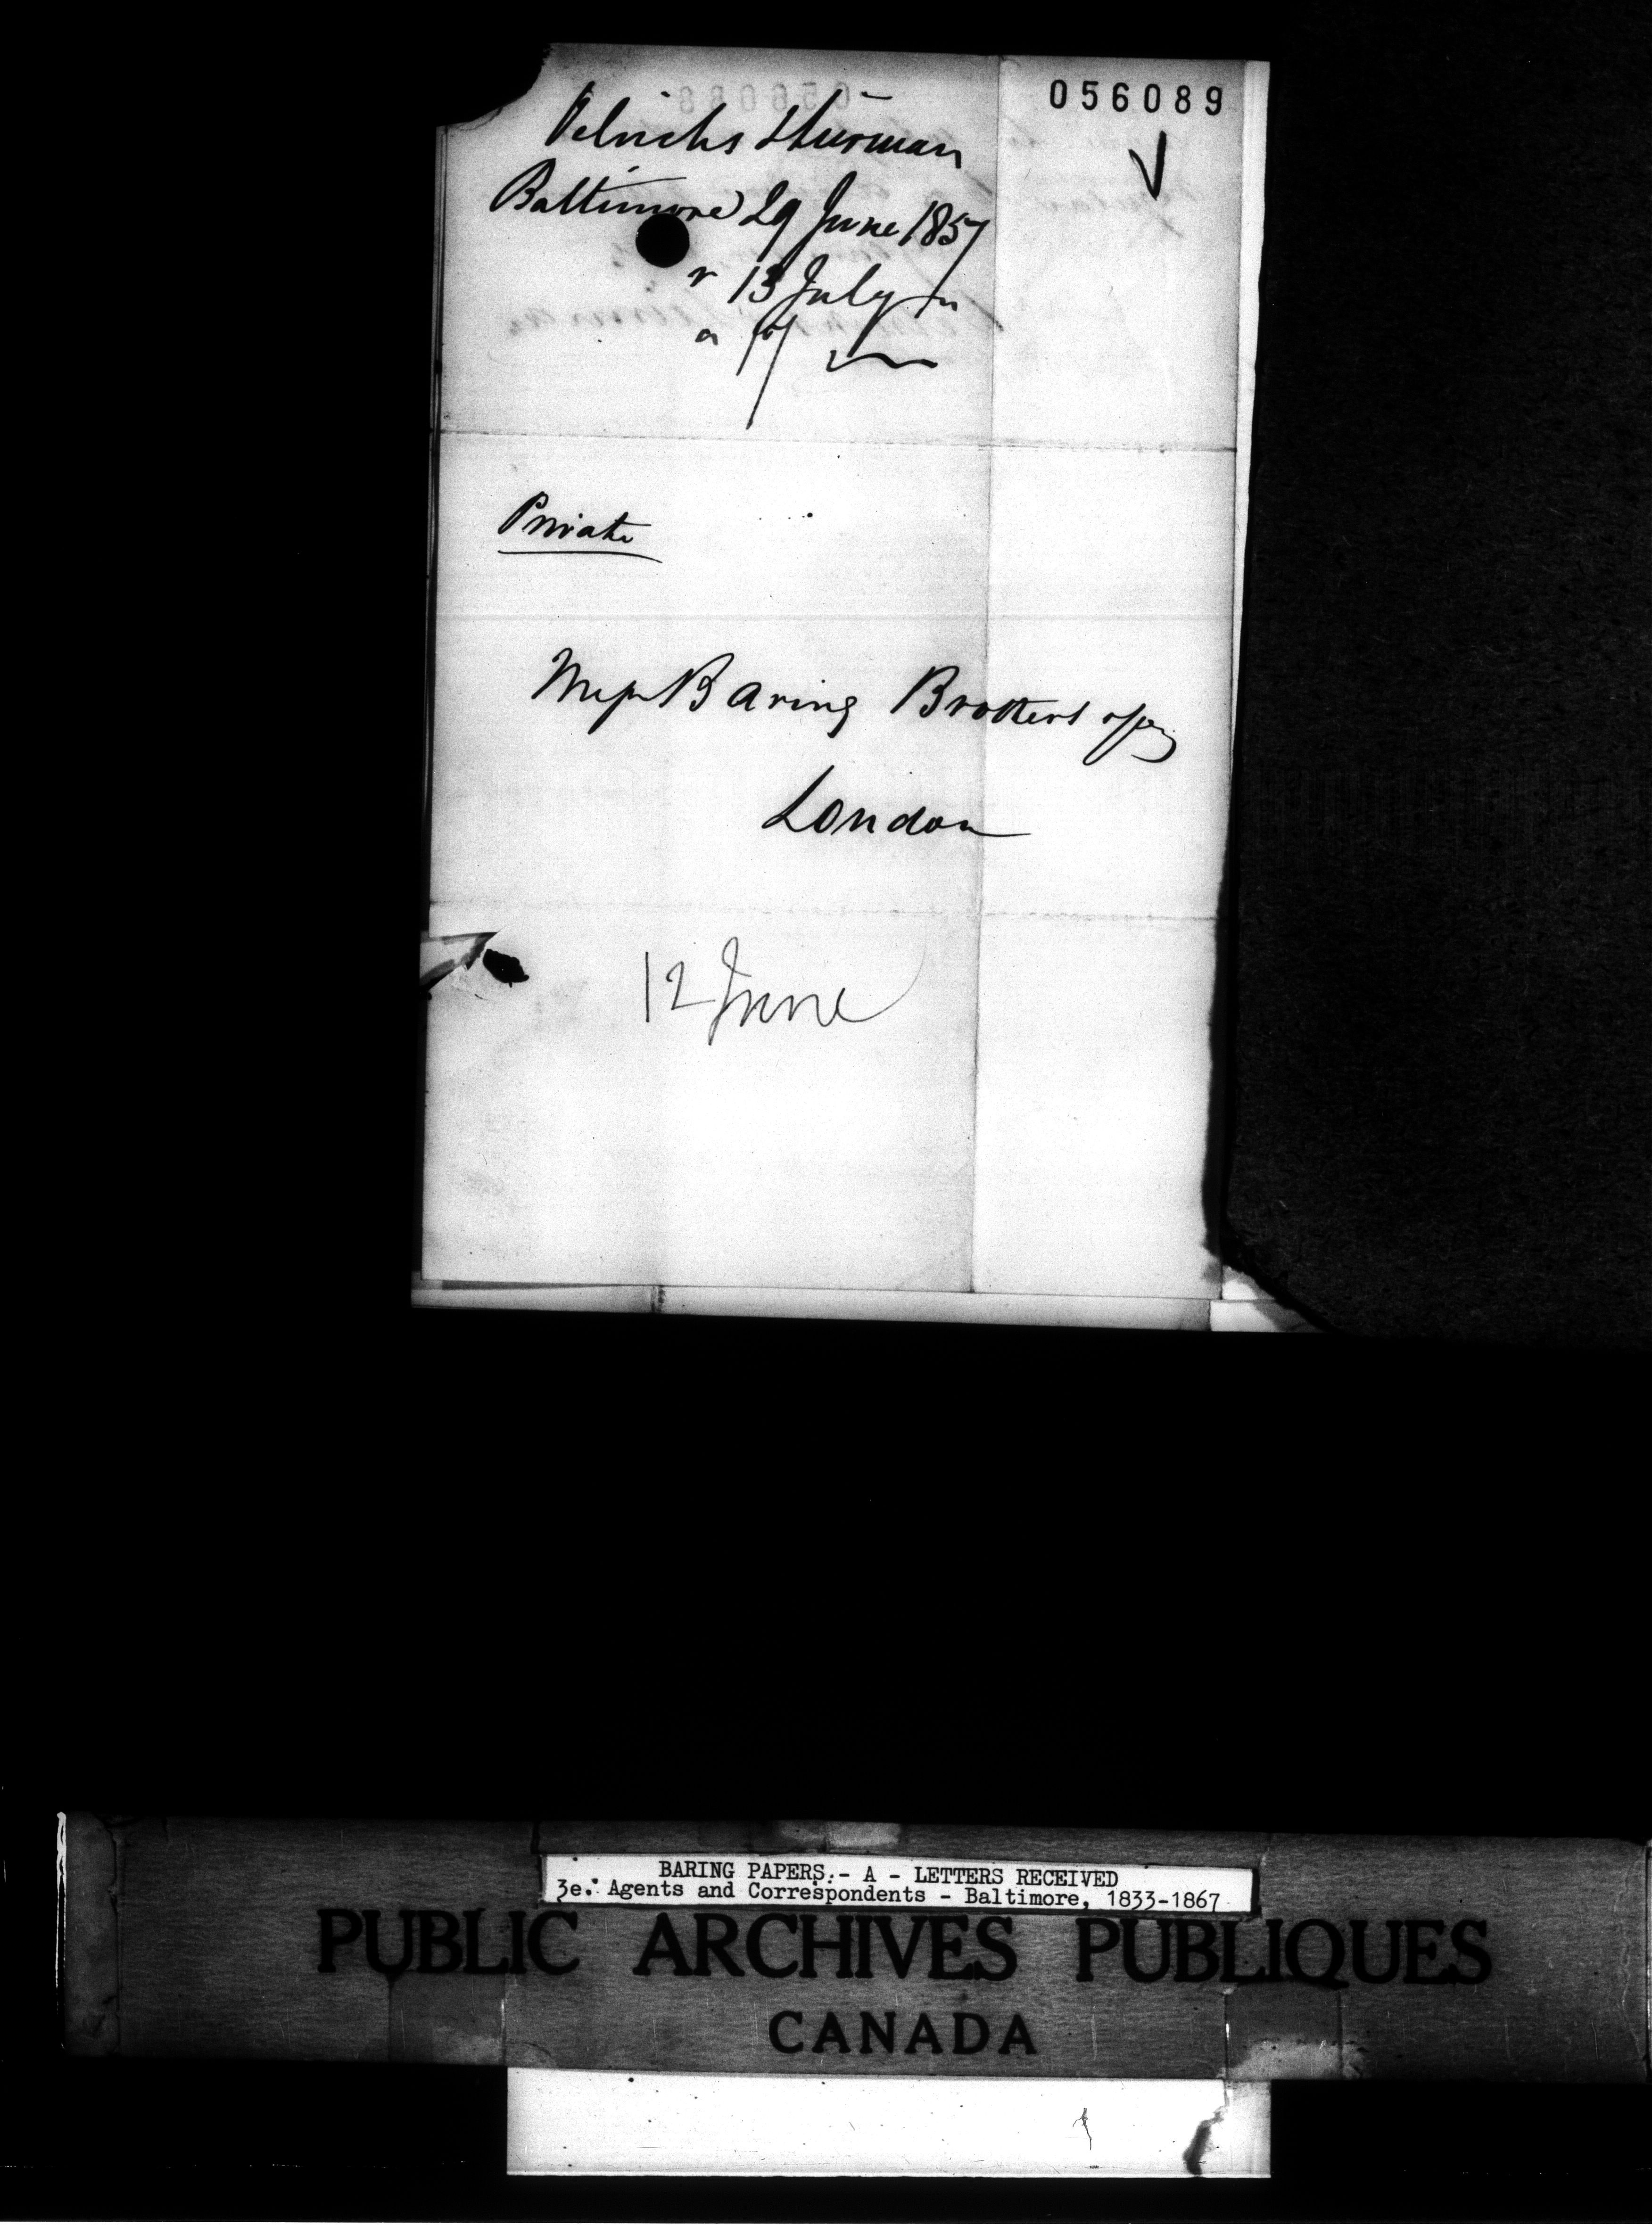 056089
Oelrichs & Lurman
Baltimore 29 June 1857
r 13 July
a 17
Private
Messrs Baring Brothers & Co
London
12 June
BARING PAPERS.- A - LETTERS RECEIVED
3e. Agents and Correspondents - Baltimore, 1833-1867
PUBLIC ARCHIVES PUBLIQUES
CANADA